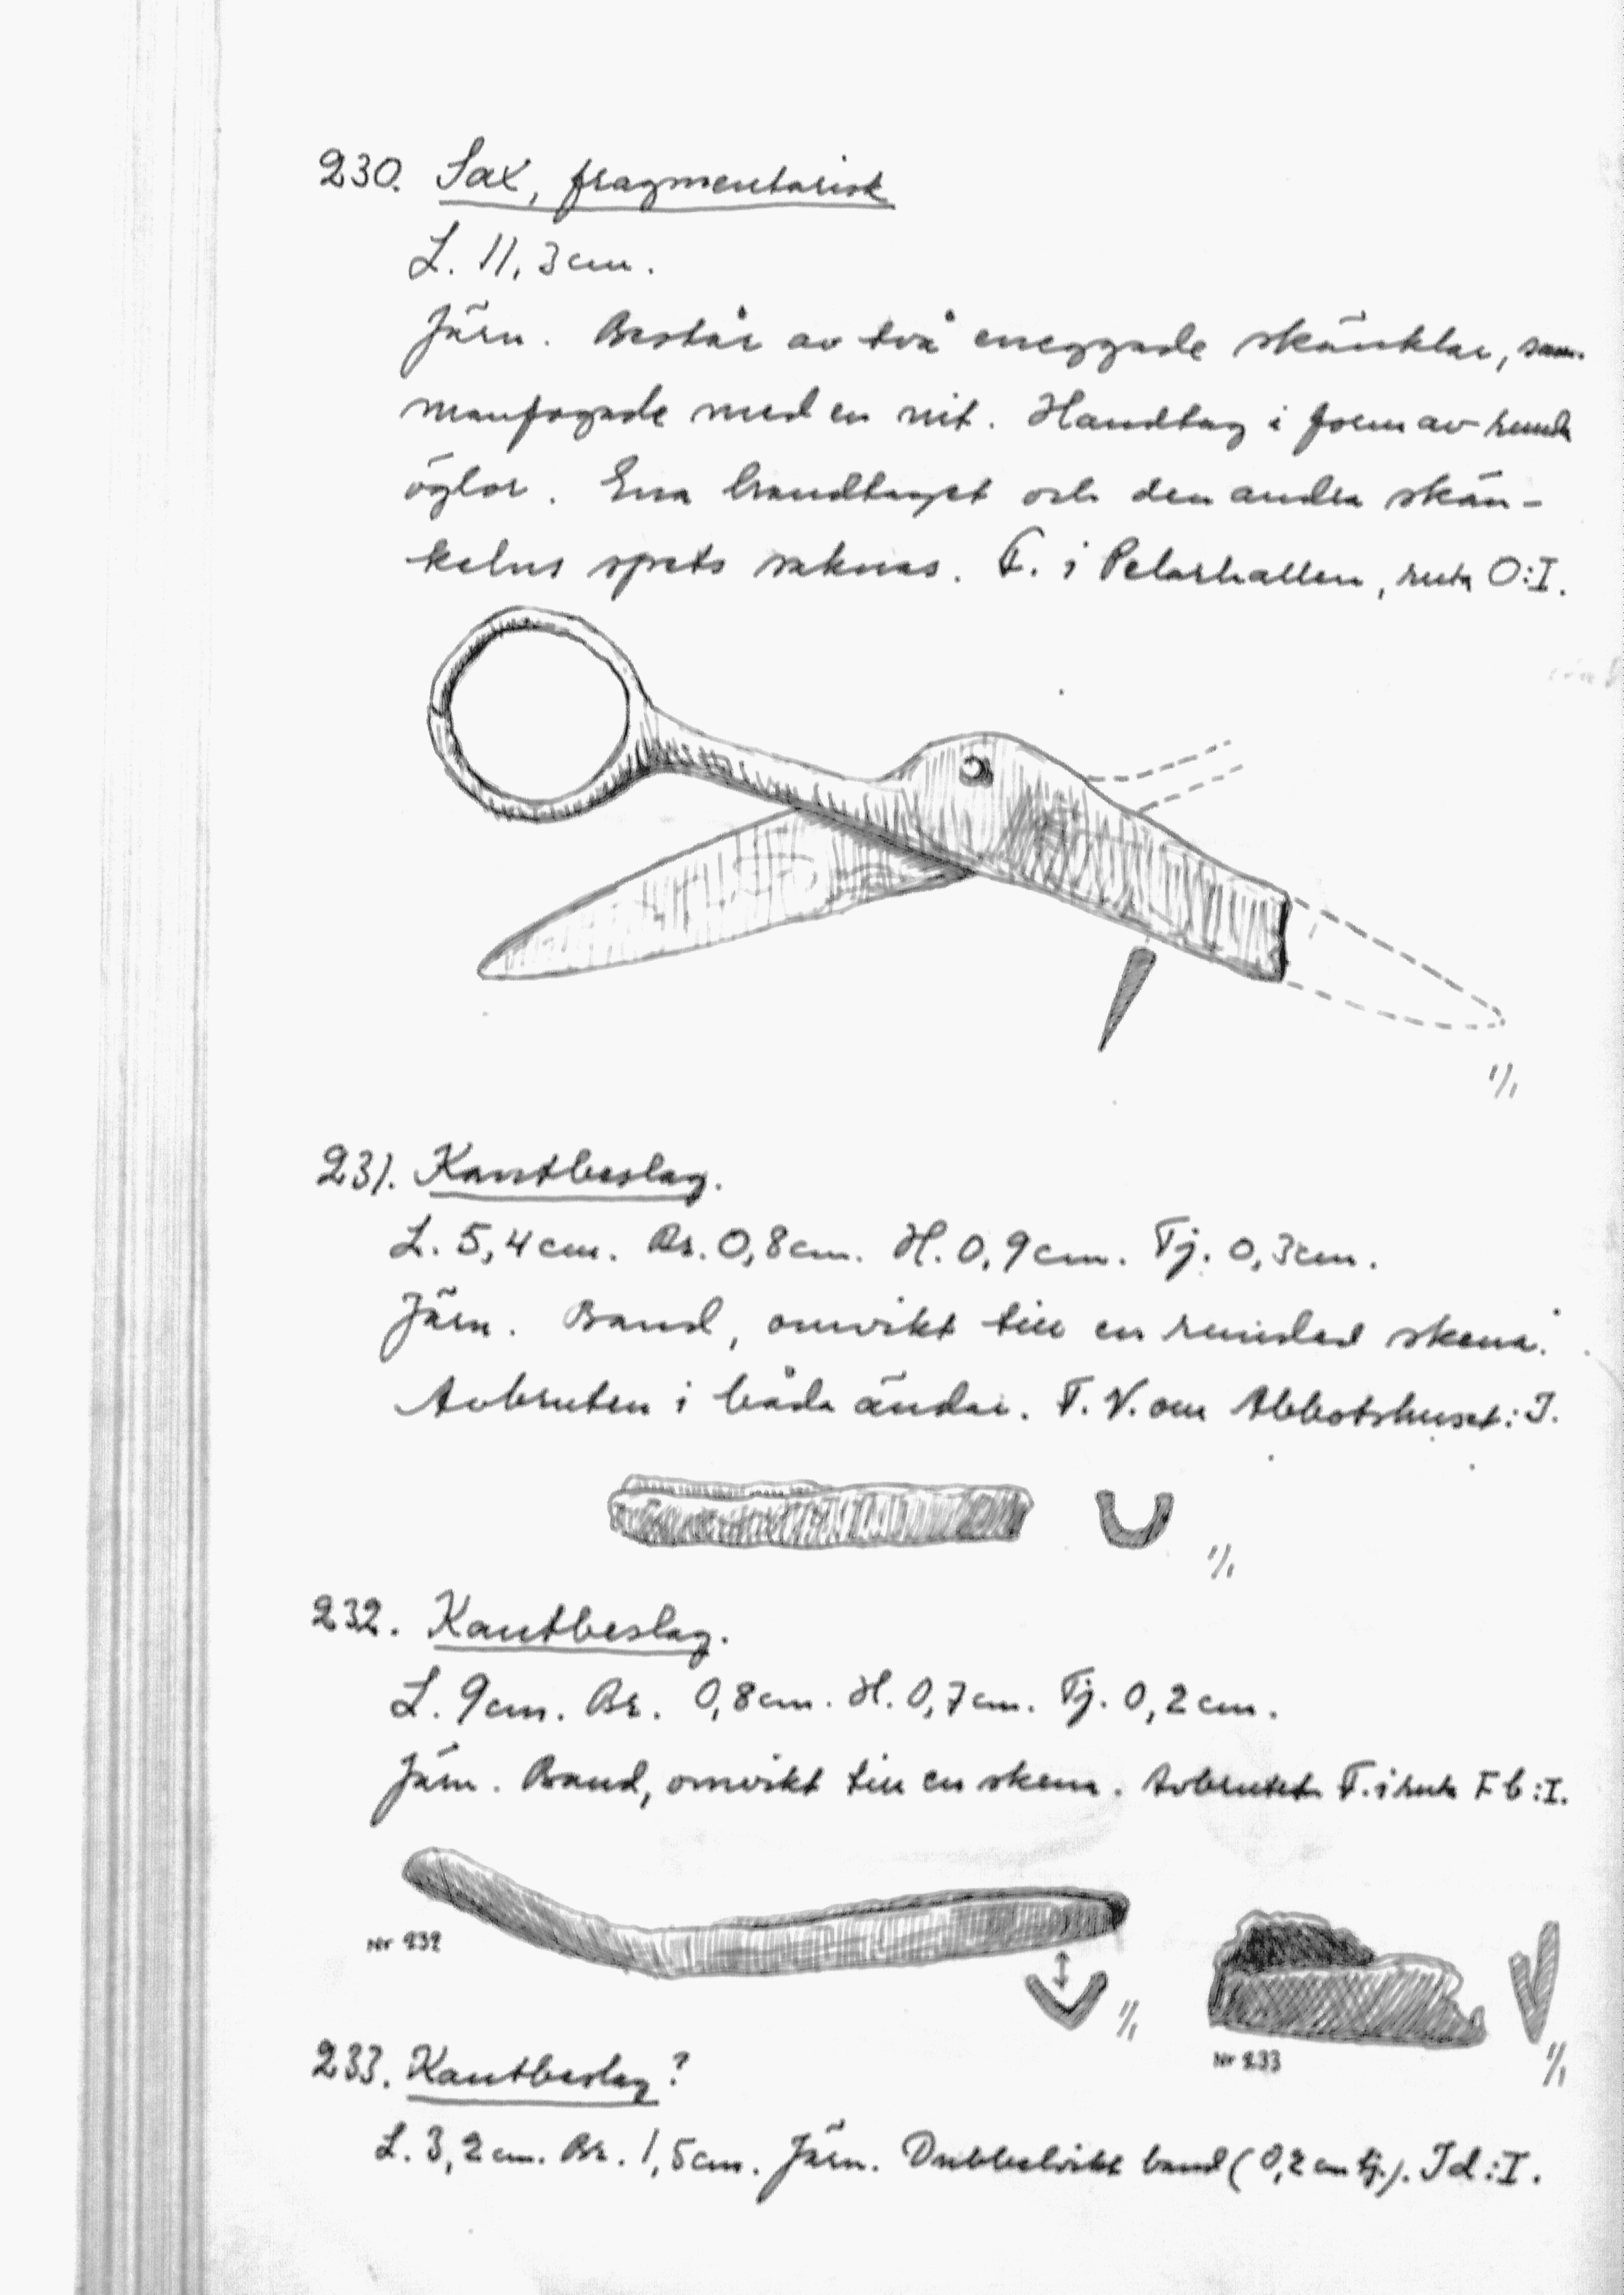 230. Sax, fragmentarisk
L. 11,3 cm.
Järn. Består av två eneggade skänklar, sam-
manfogade med en nit. Handtag i form av runda
öglor. Ena handtaget och den andra skän-
kelns spets saknas. F. i Pelarhallen, ruta O:I.
1/1
231. Kantbeslag.
L. 5,4 cm. Br. 0,8 cm. H. 0,9 cm. Tj. 0,3 cm.
Järn. Band, omvikt till en rundad skena.
Avbruten i båda ändar. F. V. om Abbotshuset: I.
1/1
232. Kantbeslag.
L. 9 cm. Br. 0,8 cm. H. 0,7 cm. Tj. 0,2 cm.
Järn. Band, omvikt till en skena. Avbrutet. F. i ruta F b:I.
Nr 232
1/1
Nr 233
1/1
233. Kantbeslag?
L. 3,2 cm. Br. 1,5 cm. Järn. Dubbelvikt band (0,2 cm tj.). I d:I.